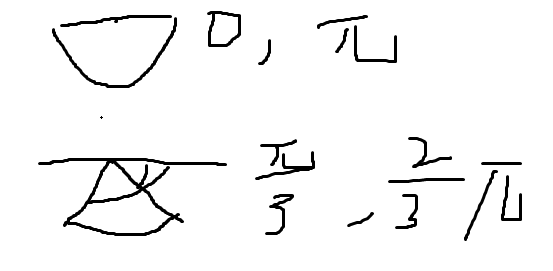 0, π
π/3, 2/3 π